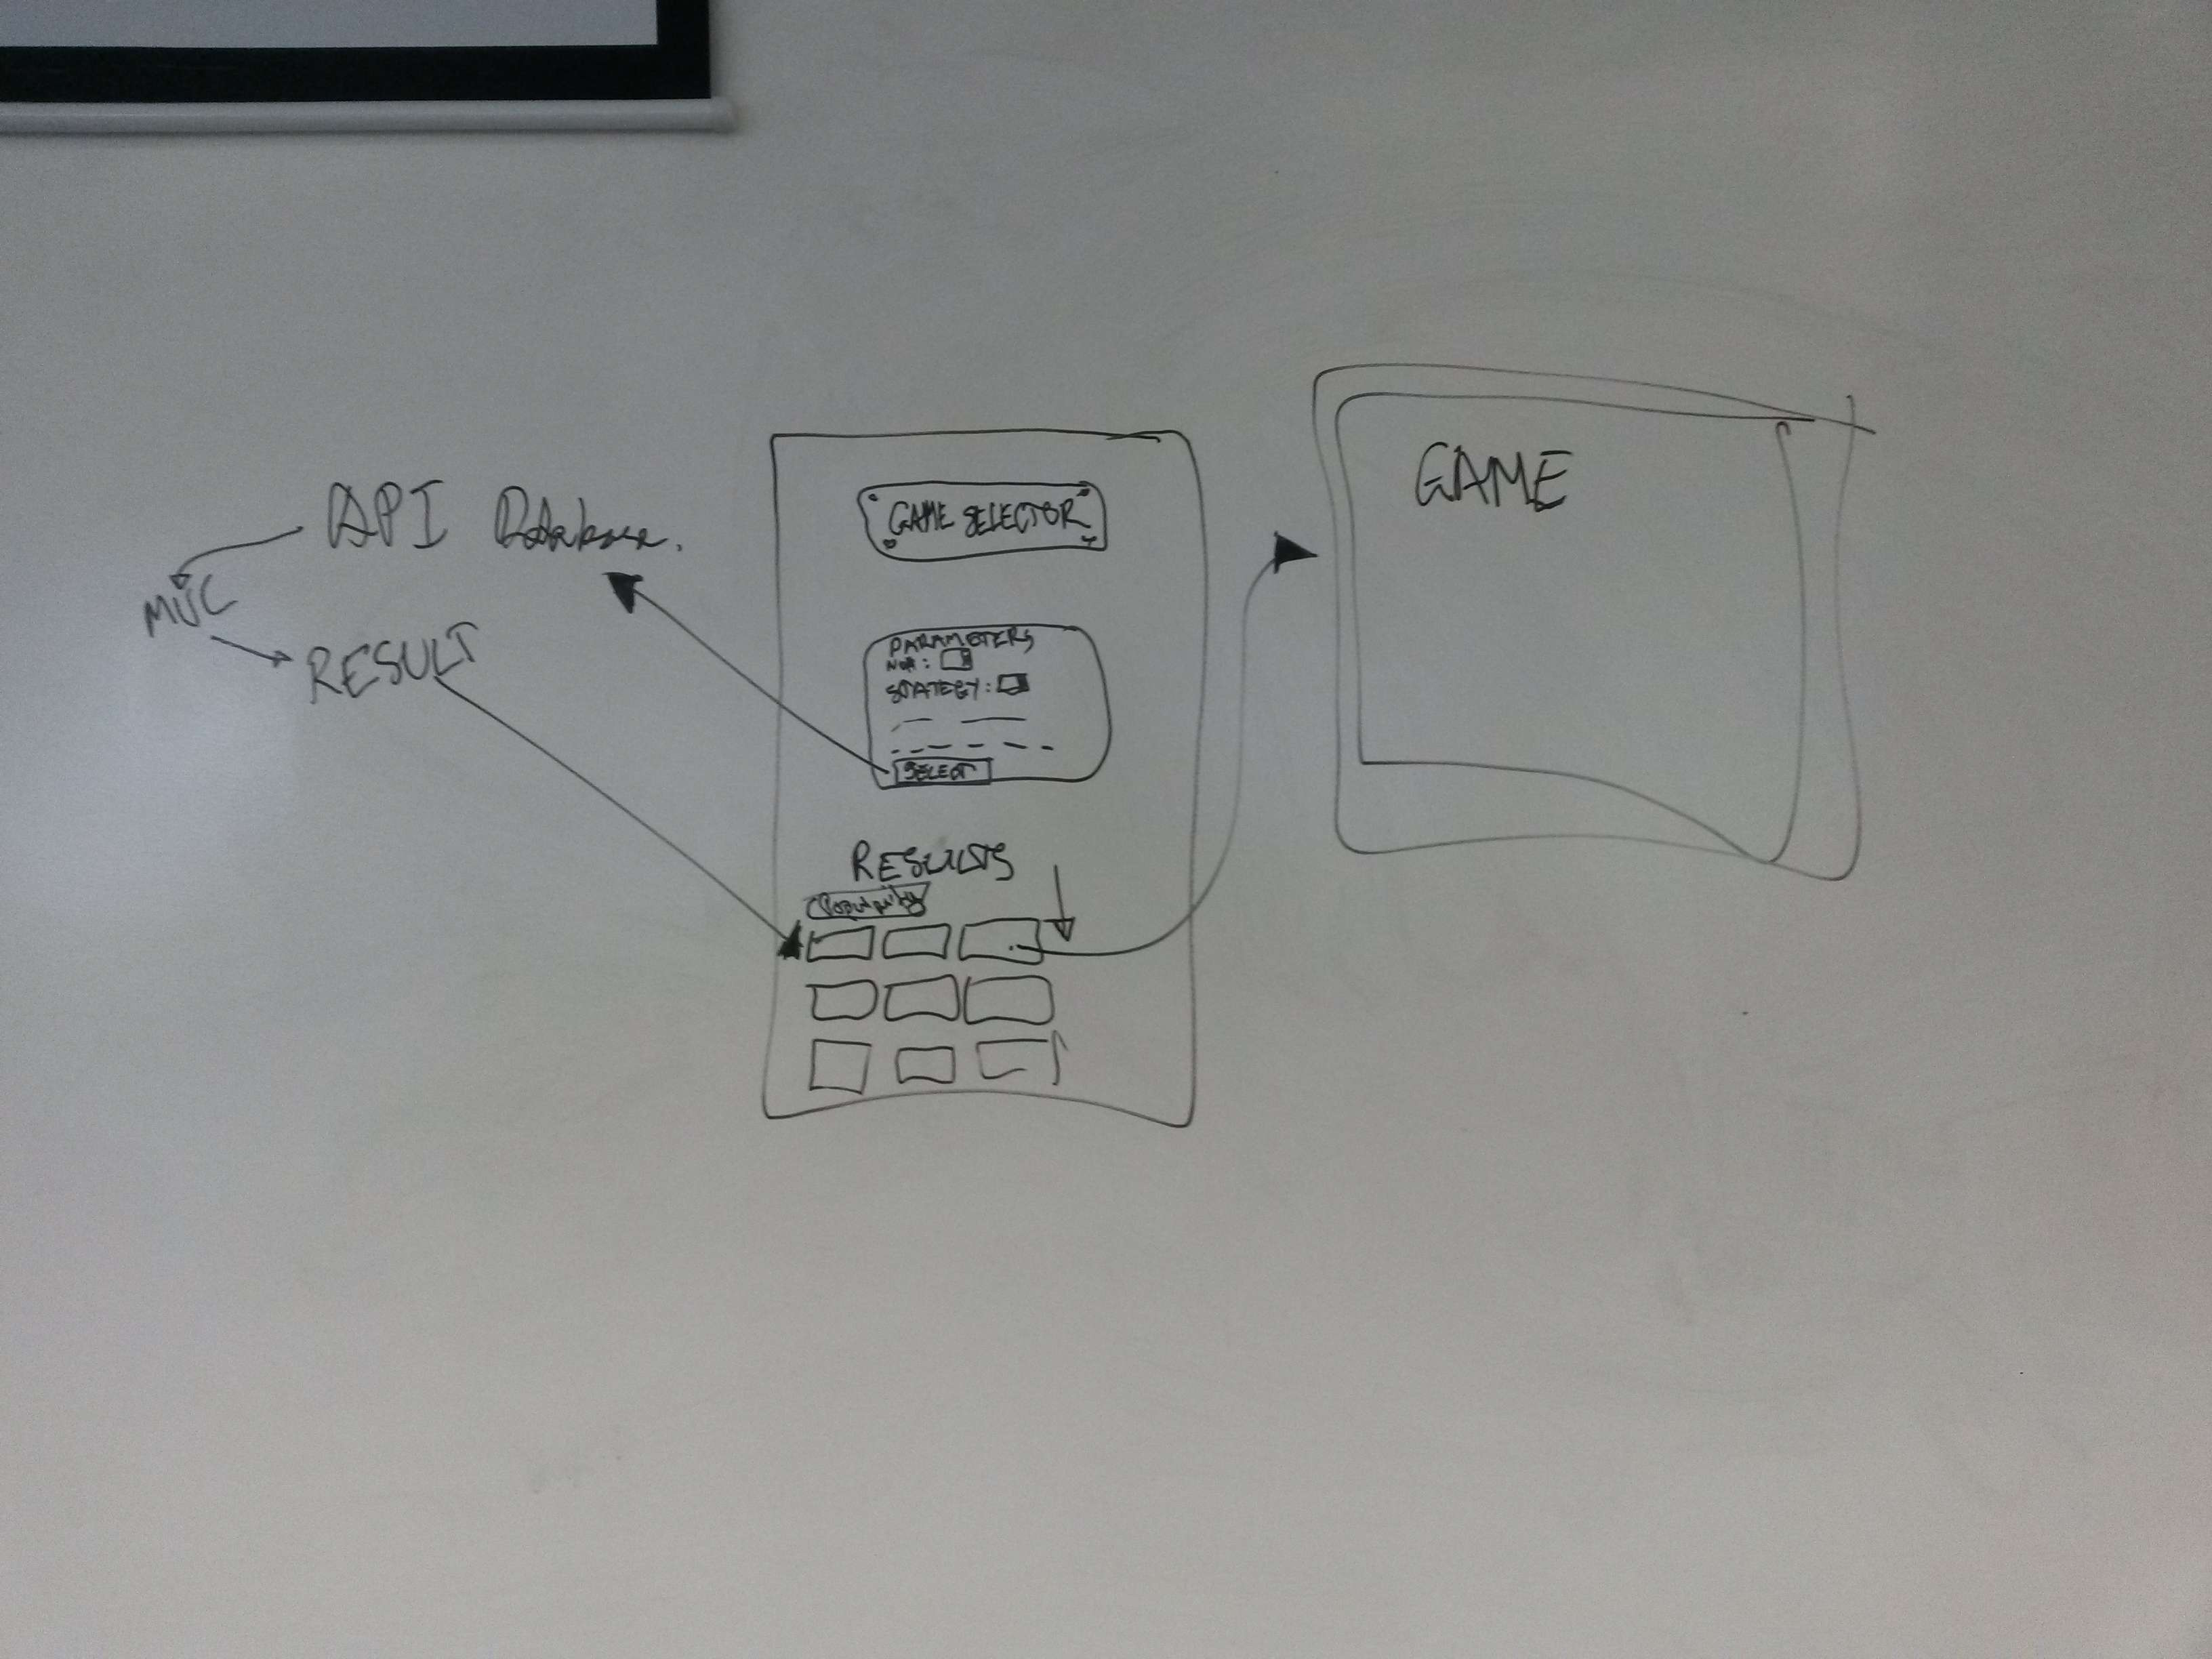 API Database.
MVC
RESULT
GAME SELECTOR
PARAMETERS
STATEGY:
SELECT
RESULTS
Popularity
GAME